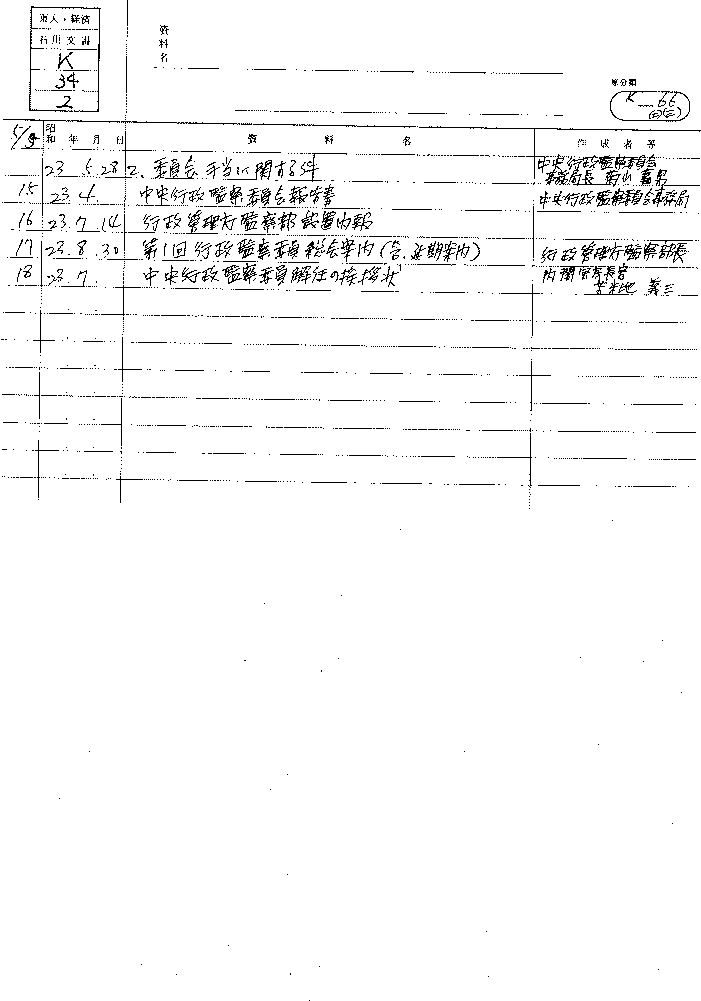 東大・経済
石川文書
K
34
2
資料名
原分類
K—66
昭和 年 月 日 資料名 作成者等
23 5.28 2. 委員会手当に関する件 中央行政監察委員会
事務局長
15 23.4. 中央行政監察委員会報告書 中央行政監察委員会事務局
16 23.7.14 行政管理庁監察部設置内報
17 23.8.30 第1回行政監察委員総会案内(含.延期案内) 行政管理庁監察部長
18 23.7. 中央行政監察委員解任の挨拶状 内閣官房長官
苫米地 義三